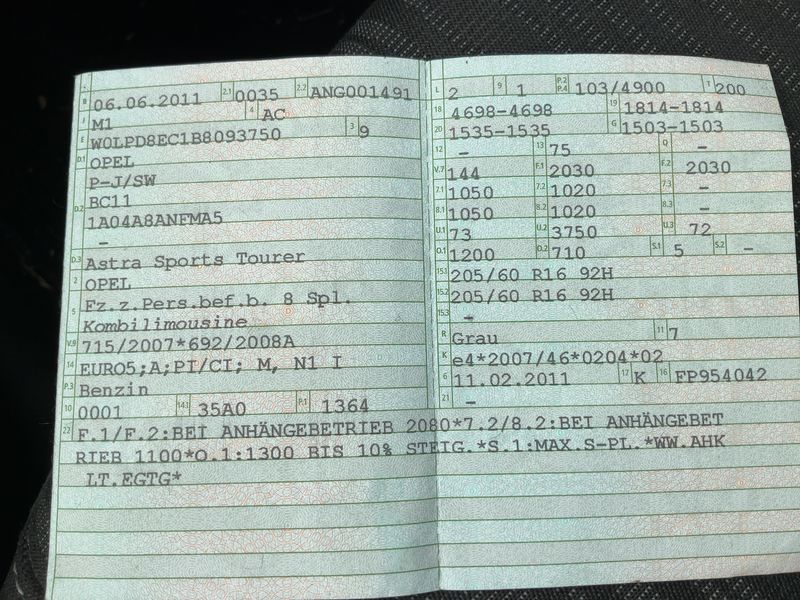 B 06.06.2011 2.1 0035 2.2 ANG001491
J M1 4 AC
E W0LPD8EC1B8093750 3 9
D.1 OPEL
P-J/SW
D.2 BC11
1A04A8ANFMA5
–
D.3 Astra Sports Tourer
2 OPEL
5 Fz.z.Pers.bef.b. 8 Spl.
Kombilimousine
V.9 715/2007*692/2008A
14 EURO5;A;PI/CI; M, N1 I
P.3 Benzin
10 0001 14.1 35A0 P.1 1364
L 2 9 1 P.2 P.4 103/4900 T 200
18 4698-4698 19 1814-1814
20 1535-1535 G 1503-1503
12 – 13 75 Q –
V.7 144 F.1 2030 F.2 2030
7.1 1050 7.2 1020 7.3 –
8.1 1050 8.2 1020 8.3 –
U.1 73 U.2 3750 U.3 72
O.1 1200 O.2 710 S.1 5 S.2 –
15.1 205/60 R16 92H
15.2 205/60 R16 92H
15.3 –
R Grau 11 7
K e4*2007/46*0204*02
6 11.02.2011 17 K 16 FP954042
21 –
22 F.1/F.2:BEI ANHÄNGEBETRIEB 2080*7.2/8.2:BEI ANHÄNGEBET
RIEB 1100*O.1:1300 BIS 10% STEIG.*S.1:MAX.S-PL.*WW.AHK
LT.EGTG*